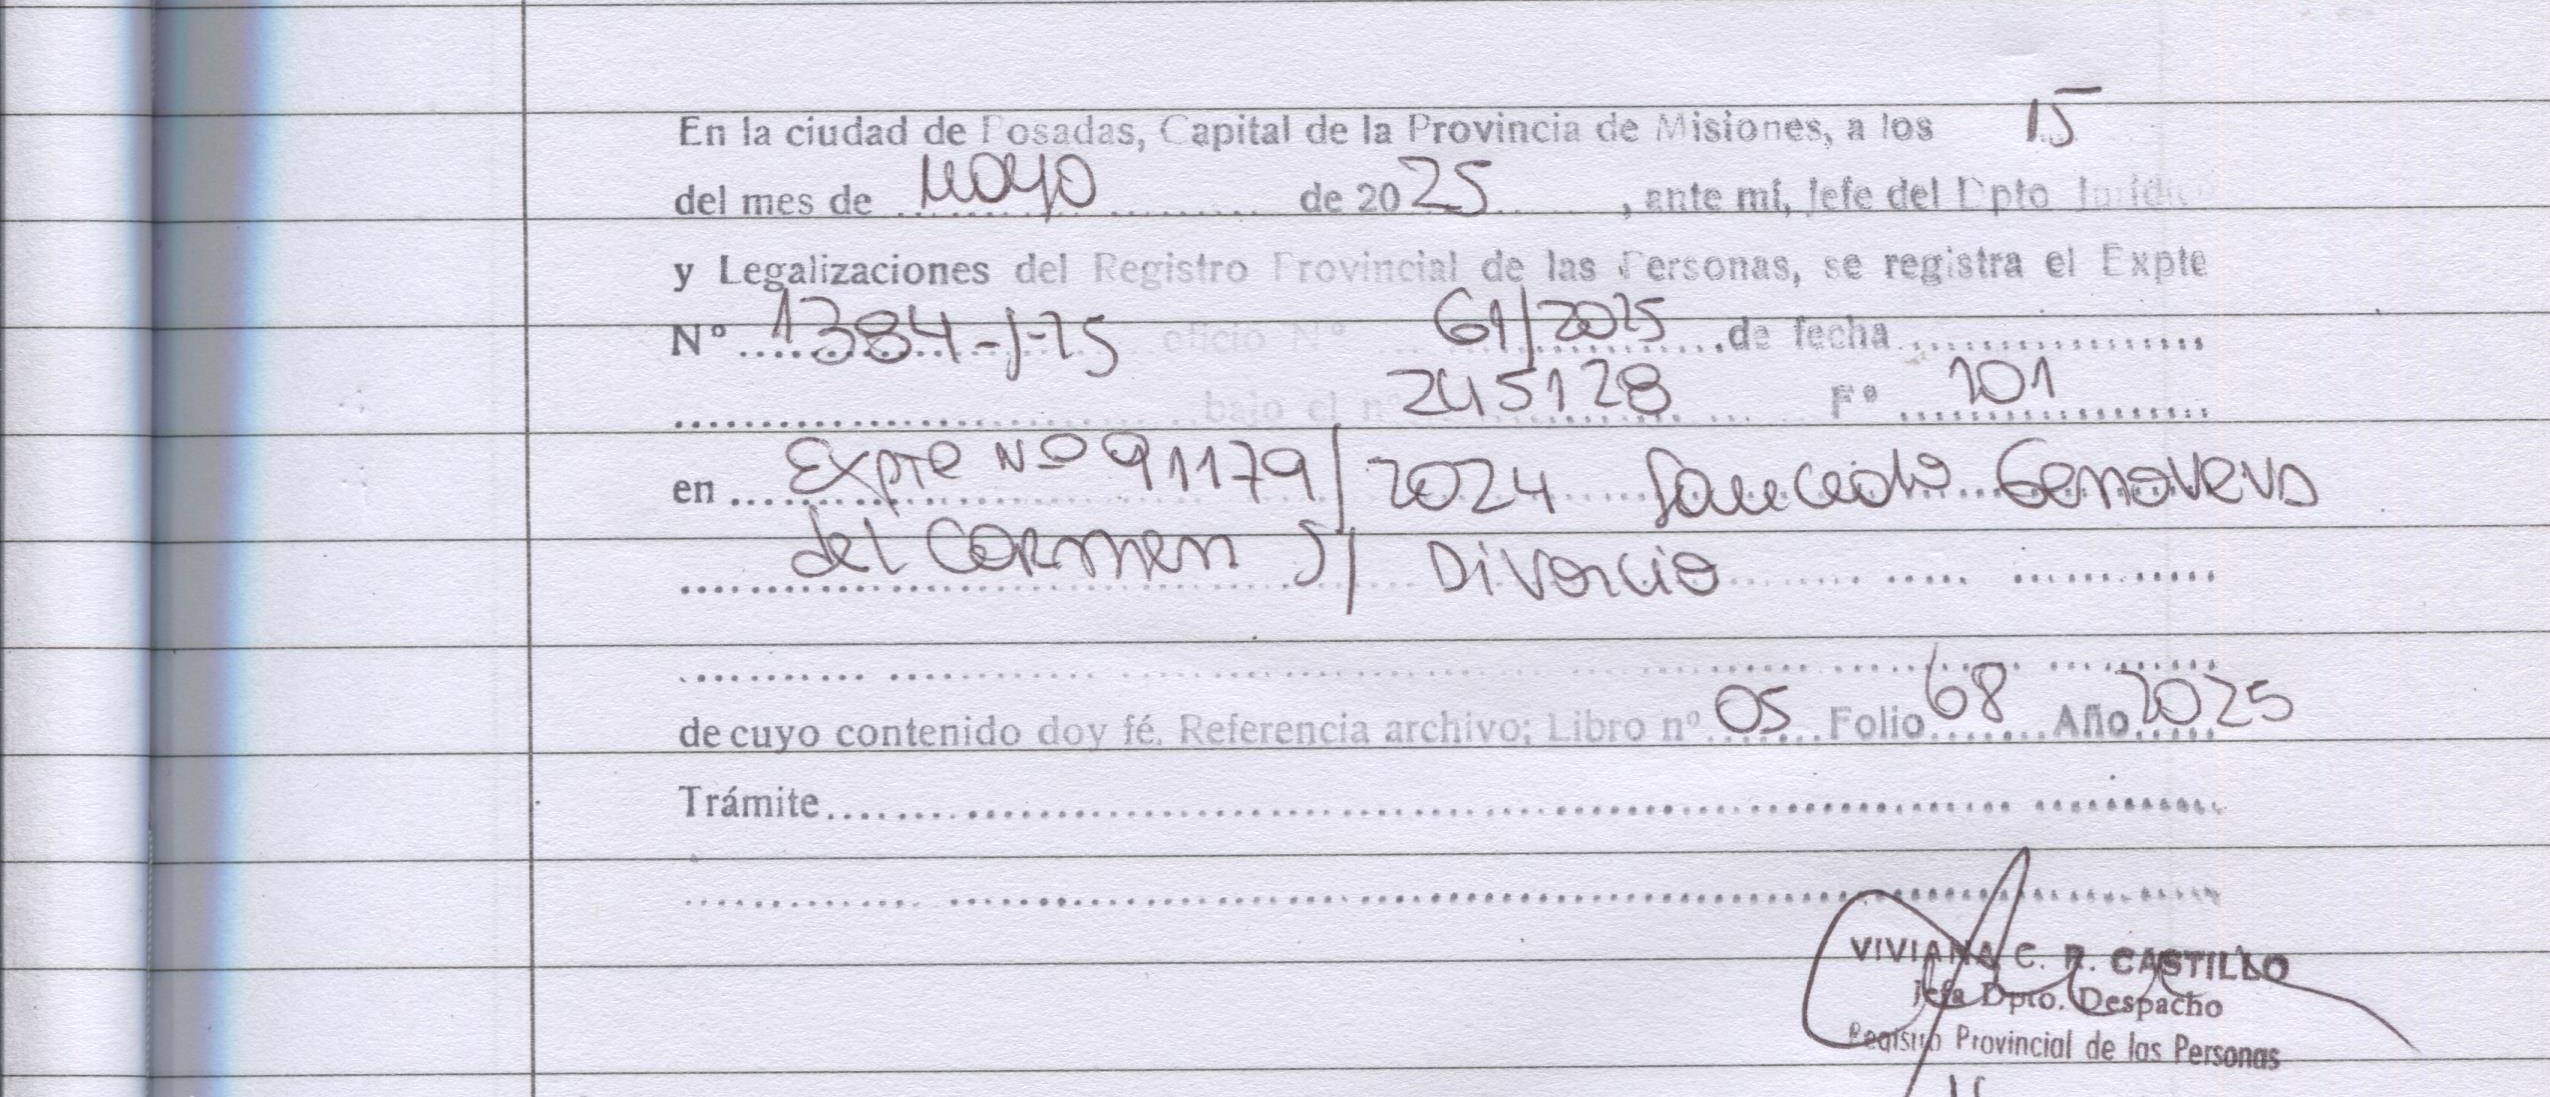 En la ciudad de Posadas, Capital de la Provincia de Misiones, a los 15
del mes de mayo de 2025, ante mí, Jefe del Dpto Jurídic
y Legalizaciones del Registro Provincial de las Personas, se registra el Expte
Nº 1384-J-25 oficio Nº 61/2025 de fecha
bajo el nº 245128 Fº 101
en Expte Nº 91179/2024 Saucedo Genoveva
del Carmen S/ Divorcio
de cuyo contenido doy fé. Referencia archivo; Libro nº 05 Folio 68 Año 2025
Trámite
VIVIANA C. R. CASTILLO
Jefa Dpto. Despacho
Registro Provincial de las Personas